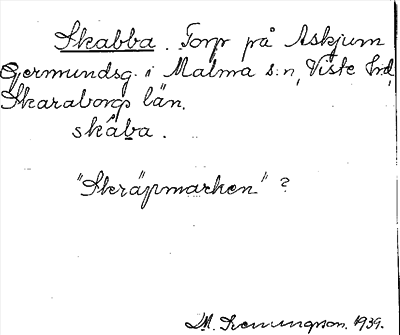 Skabba. Torp på Askjum
Germundsg. i Malma s:n, Viste hrd,
Skaraborgs län.
skába.
"Skräpmarken" ?
1939.